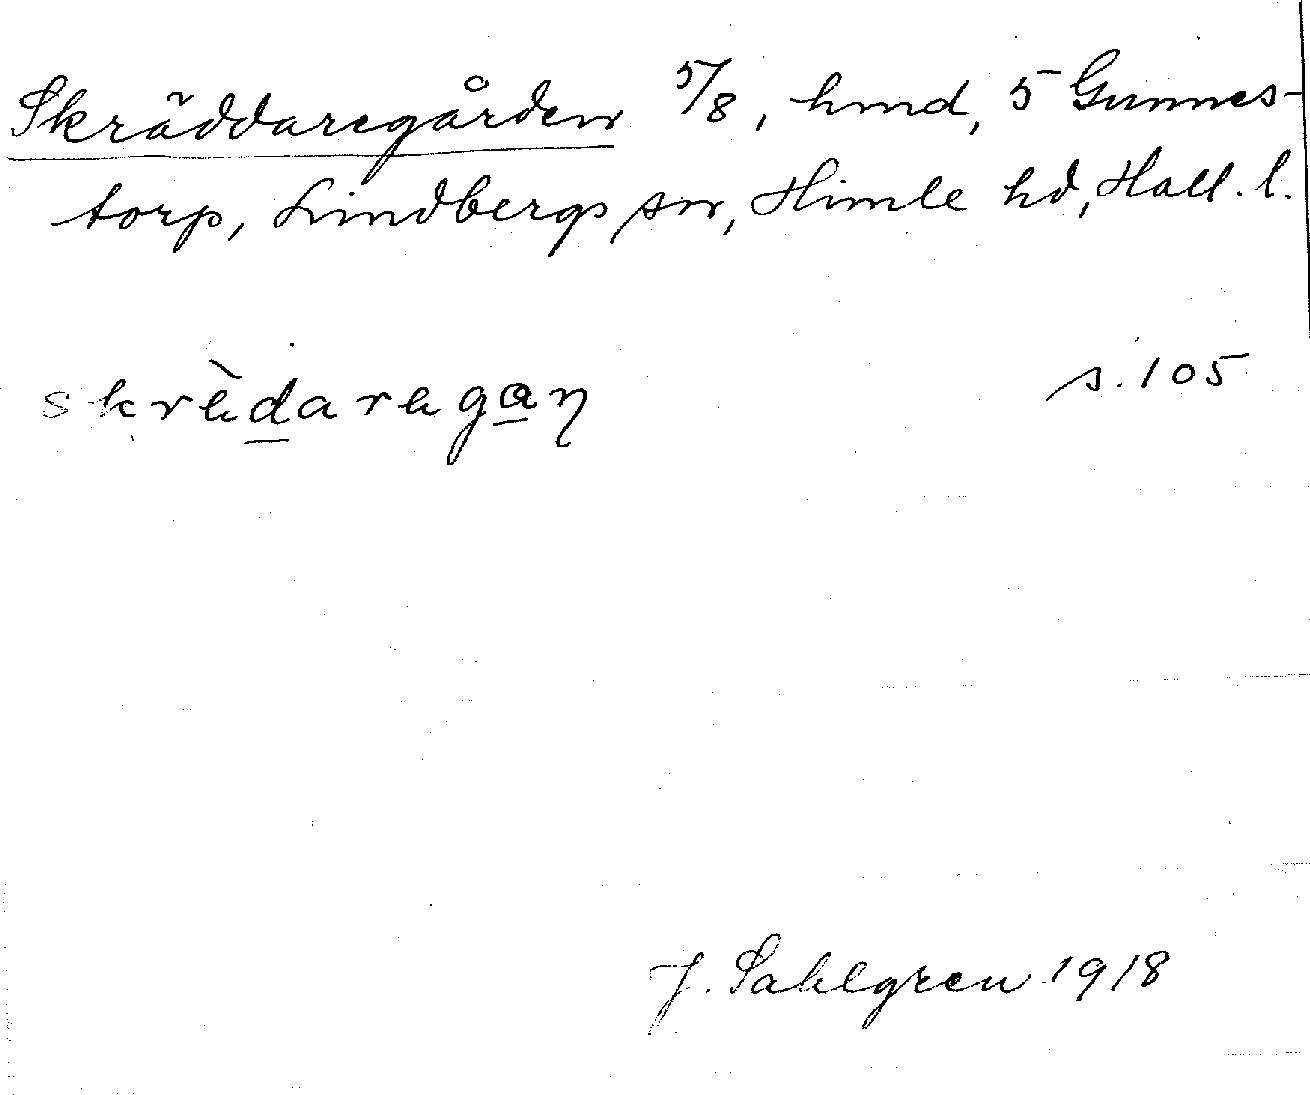 Skräddaregården 5/8, hmd, 5 Gunnes-
torp, Lindbergs sn, Himle hd, Hall. l.
skrædaragan s. 105
J. Sahlgren 1918